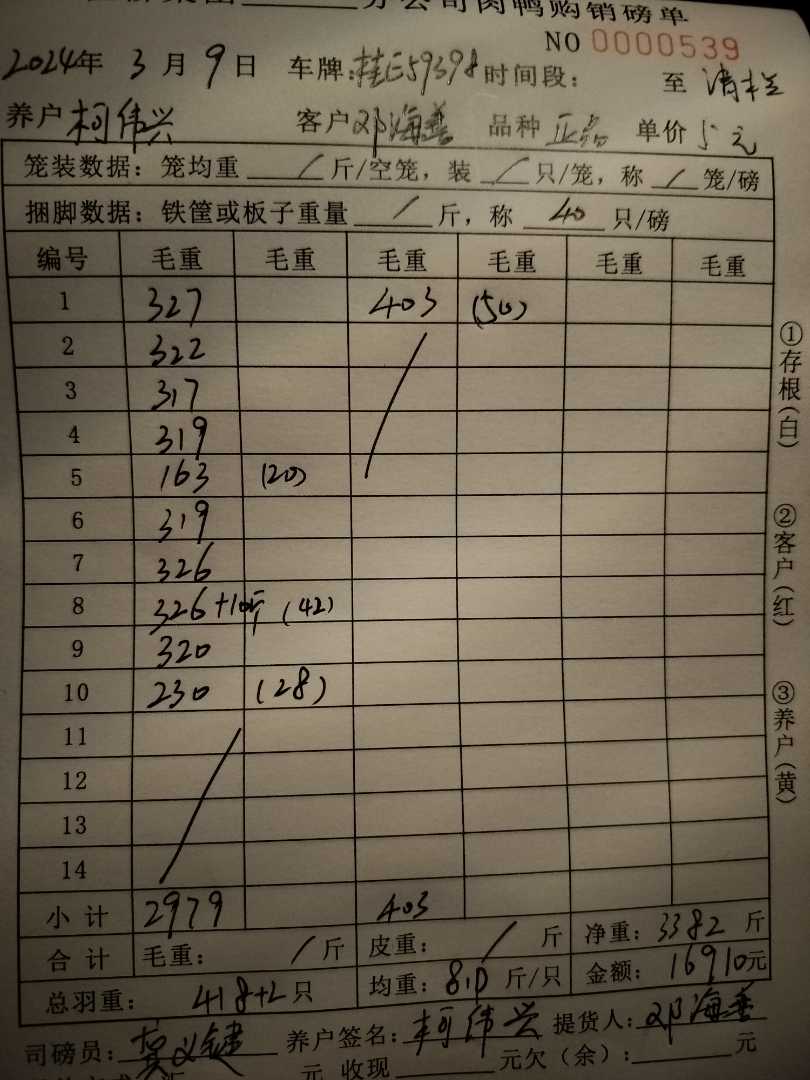 分公司肉鸭购销磅单
NO 0000539
2024年 3月 9日 车牌: 59398 时间段: 至 清栏
养户 柯伟兴 客户 邓海善 品种 正品 单价 5元
笼装数据: 笼均重 / 斤/空笼, 装 / 只/笼, 称 / 笼/磅
捆脚数据: 铁筐或板子重量 / 斤, 称 40 只/磅
编号 毛重 毛重 毛重 毛重 毛重 毛重
1 327 403 (50)
2 322
3 317
4 319
5 163 (20)
6 319
7 326
8 326+10斤 (42)
9 320
10 230 (28)
11
12
13
14
小计 2979 403
合计 毛重: / 斤 皮重: / 斤 净重: 3382 斤
总羽重: 418+2 只 均重: 8.10 斤/只 金额: 16910元
司磅员: 养户签名: 柯伟兴 提货人: 邓海善
元 收现 元欠(余): 元
①存根(白)
②客户(红)
③养户(黄)